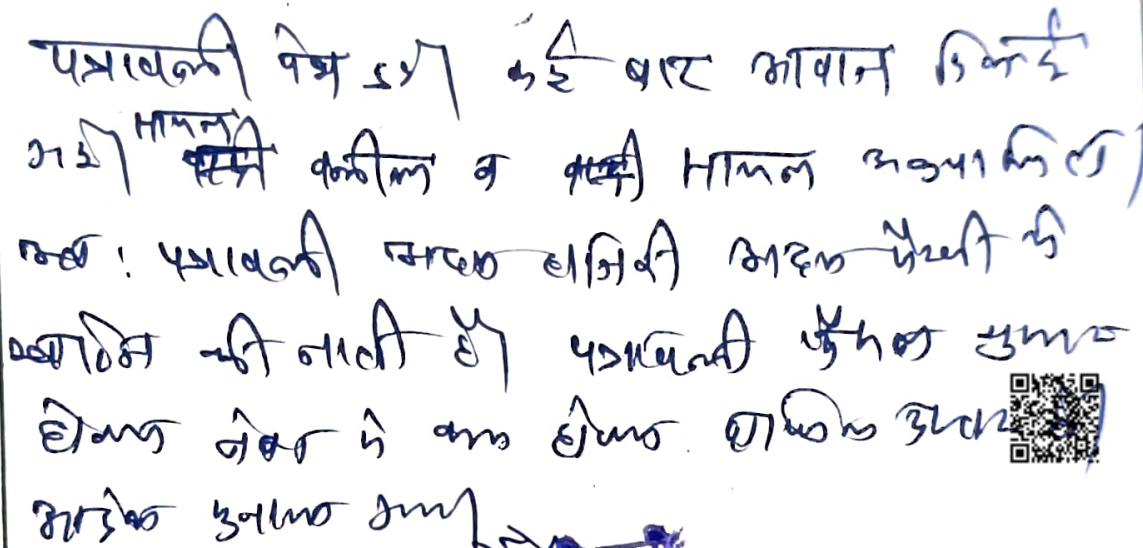 पत्रावली पेश हुई। कई बार आवाज दिलाई
गई। सायल वकील व सायल
अतः पत्रावली अदम हाजिरी अदम पैरवी में
खारिज की जाती है। पत्रावली फैसल शुमार
होकर नंबर से कम होकर दाखिल दफ्तर हो।
आदेश सुनाया गया।